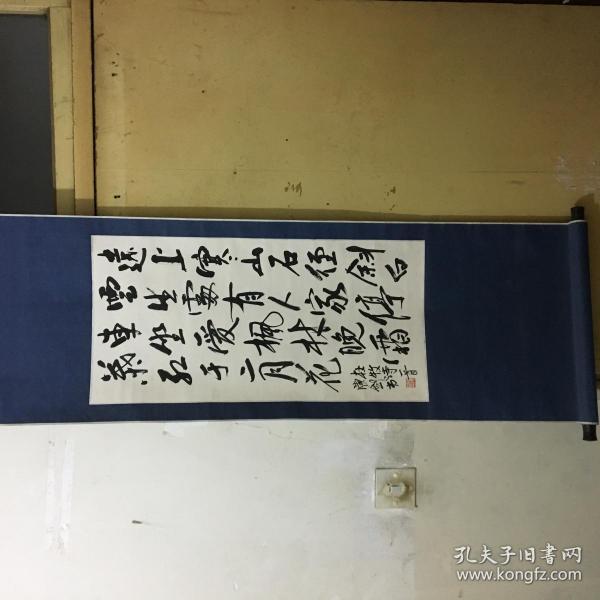 遠上寒山石徑斜白
雲生處有人家停
車坐愛楓林晚霜
葉紅于二月花
杜牧诗一首
书
孔夫子旧书网
www.kongfz.com